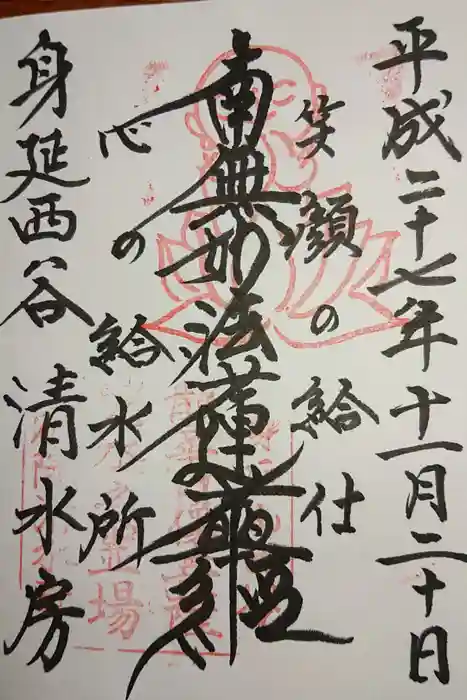 平成二十七年十一月二十日
笑顔の給仕
南無妙法蓮華経
心の給水所
身延西谷 清水房